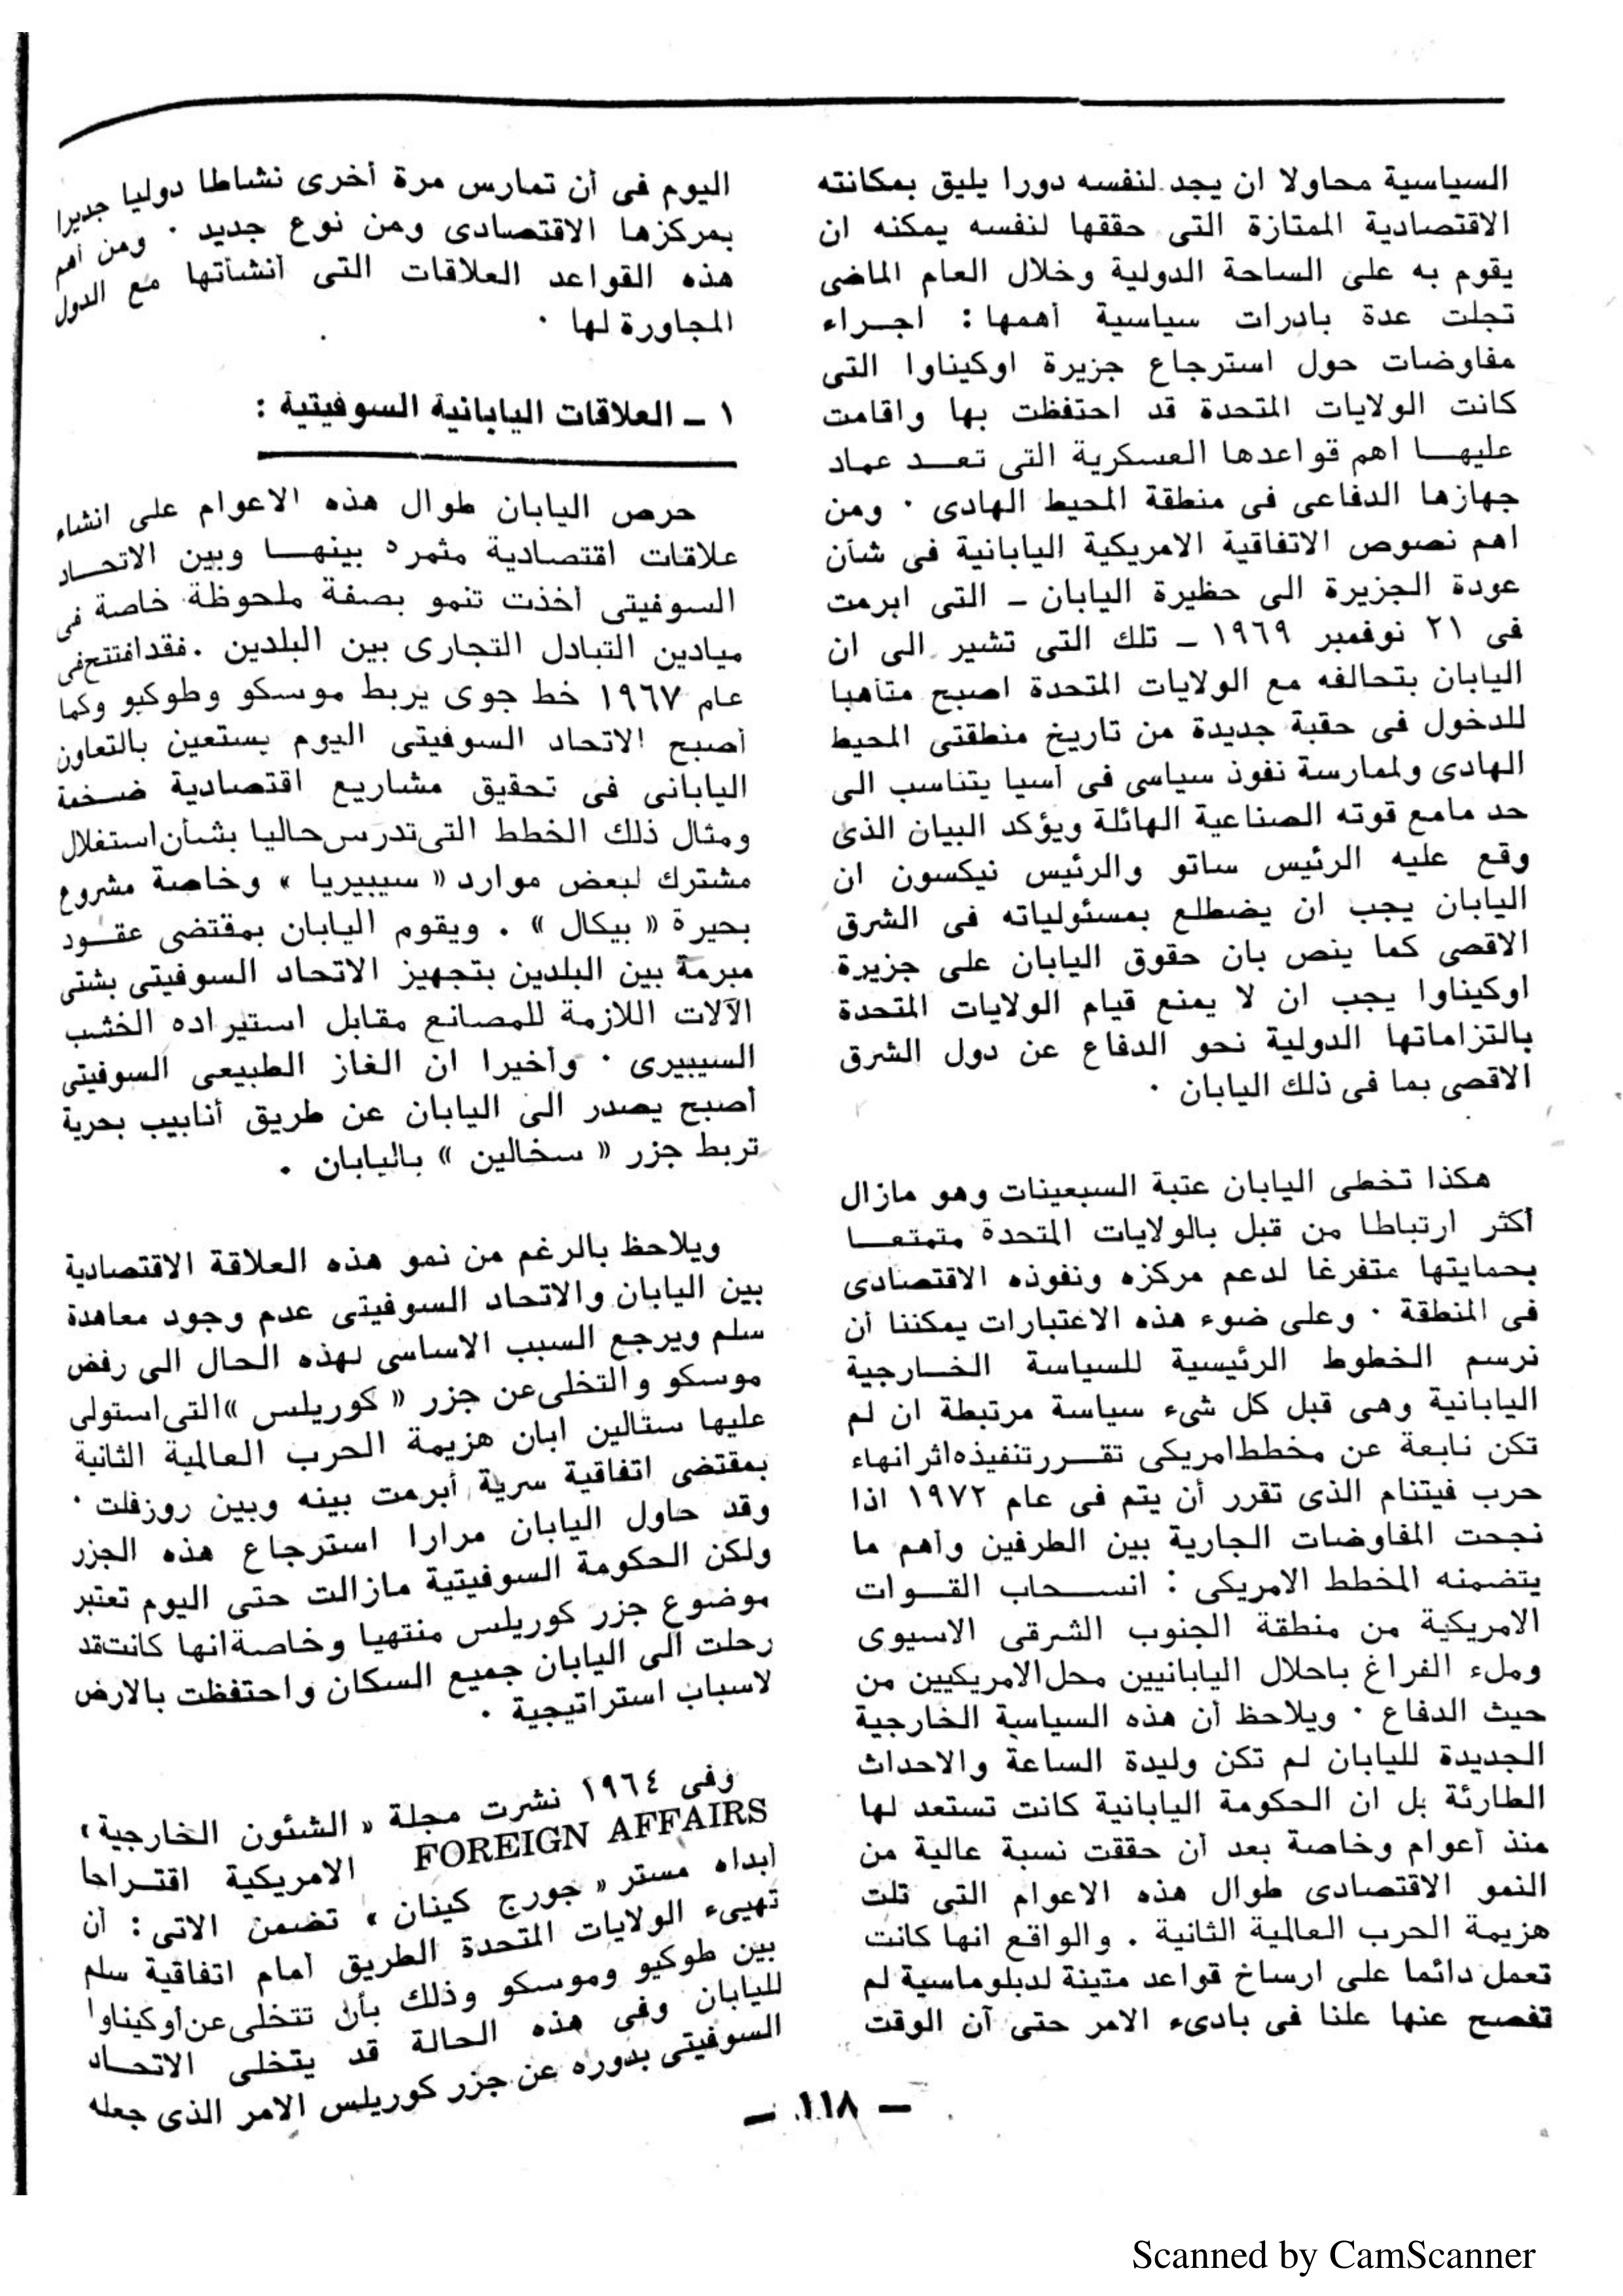 السياسية محاولا ان يجد لنفسه دورا يليق بمكانته
الاقتصادية الممتازة التى حققها لنفسه يمكنه ان
يقوم به على الساحة الدولية وخلال العام الماضى
تجلت عدة بادرات سياسية أهمها : اجراء
مفاوضات حول استرجاع جزيرة اوكيناوا التى
كانت الولايات المتحدة قد احتفظت بها واقامت
عليها اهم قواعدها العسكرية التى تعد عماد
جهازها الدفاعى فى منطقة المحيط الهادى . ومن
اهم نصوص الاتفاقية الامريكية اليابانية فى شأن
عودة الجزيرة الى حظيرة اليابان – التى ابرمت
فى ٢١ نوفمبر ١٩٦٩ – تلك التى تشير الى ان
اليابان بتحالفه مع الولايات المتحدة اصبح متأهبا
للدخول فى حقبة جديدة من تاريخ منطقتى المحيط
الهادى ولممارسة نفوذ سياسى فى أسيا يتناسب الى
حد مامع قوته الصناعية الهائلة ويؤكد البيان الذى
وقع عليه الرئيس ساتو والرئيس نيكسون ان
اليابان يجب ان يضطلع بمسئولياته فى الشرق
الاقصى كما ينص بان حقوق اليابان على جزيرة
اوكيناوا يجب ان لا يمنع قيام الولايات المتحدة
بالتزاماتها الدولية نحو الدفاع عن دول الشرق
الاقصى بما فى ذلك اليابان .
هكذا تخطى اليابان عتبة السبعينات وهو مازال
أكثر ارتباطا من قبل بالولايات المتحدة متمتعا
بحمايتها متفرغا لدعم مركزه ونفوذه الاقتصادى
فى المنطقة . وعلى ضوء هذه الاعتبارات يمكننا أن
نرسم الخطوط الرئيسية للسياسة الخارجية
اليابانية وهى قبل كل شىء سياسة مرتبطة ان لم
تكن نابعة عن مخطط امريكى تقرر تنفيذه اثر انهاء
حرب فيتنام الذى تقرر أن يتم فى عام ١٩٧٢ اذا
نجحت المفاوضات الجارية بين الطرفين وأهم ما
يتضمنه المخطط الامريكى : انسحاب القوات
الامريكية من منطقة الجنوب الشرقى الاسيوى
وملء الفراغ باحلال اليابانيين محل الامريكيين من
حيث الدفاع . ويلاحظ أن هذه السياسة الخارجية
الجديدة لليابان لم تكن وليدة الساعة والاحداث
الطارئة بل ان الحكومة اليابانية كانت تستعد لها
منذ أعوام وخاصة بعد أن حققت نسبة عالية من
النمو الاقتصادى طوال هذه الاعوام التى تلت
هزيمة الحرب العالمية الثانية . والواقع انها كانت
تعمل دائما على ارساخ قواعد متينة لدبلوماسية لم
تفصح عنها علنا فى بادىء الامر حتى آن الوقت
اليوم فى أن تمارس مرة أخرى نشاطا دوليا جديرا
بمركزها الاقتصادى ومن نوع جديد . ومن أهم
هذه القواعد العلاقات التى أنشأتها مع الدول
المجاورة لها .
١ – العلاقات اليابانية السوفيتية :
حرص اليابان طوال هذه الاعوام على انشاء
علاقات اقتصادية مثمره بينها وبين الاتحاد
السوفيتى أخذت تنمو بصفة ملحوظة خاصة فى
ميادين التبادل التجارى بين البلدين . فقد افتتح فى
عام ١٩٦٧ خط جوى يربط موسكو وطوكيو وكما
أصبح الاتحاد السوفيتى اليوم يستعين بالتعاون
اليابانى فى تحقيق مشاريع اقتصادية ضخمة
ومثال ذلك الخطط التى تدرس حاليا بشأن استغلال
مشترك لبعض موارد « سيبيريا » وخاصة مشروع
بحيرة « بيكال » . ويقوم اليابان بمقتضى عقود
مبرمة بين البلدين بتجهيز الاتحاد السوفيتى بشتى
الآلات اللازمة للمصانع مقابل استيراده الخشب
السيبيرى . وأخيرا ان الغاز الطبيعى السوفيتى
أصبح يصدر الى اليابان عن طريق أنابيب بحرية
تربط جزر « سخالين » باليابان .
ويلاحظ بالرغم من نمو هذه العلاقة الاقتصادية
بين اليابان والاتحاد السوفيتى عدم وجود معاهدة
سلم ويرجع السبب الاساسى لهذه الحال الى رفض
موسكو والتخلى عن جزر « كوريلس » التى استولى
عليها ستالين ابان هزيمة الحرب العالمية الثانية
بمقتضى اتفاقية سرية أبرمت بينه وبين روزفلت .
وقد حاول اليابان مرارا استرجاع هذه الجزر
ولكن الحكومة السوفيتية مازالت حتى اليوم تعتبر
موضوع جزر كوريلس منتهيا وخاصة انها كانت قد
رحلت الى اليابان جميع السكان واحتفظت بالارض
لاسباب استراتيجية .
وفى ١٩٦٤ نشرت مجلة « الشئون الخارجية »
FOREIGN AFFAIRS الامريكية اقتراحا
أبداه مستر « جورج كينان » تضمن الاتى : أن
تهيىء الولايات المتحدة الطريق أمام اتفاقية سلم
بين طوكيو وموسكو وذلك بأن تتخلى عن أوكيناوا
لليابان وفى هذه الحالة قد يتخلى الاتحاد
السوفيتى بدوره عن جزر كوريلس الامر الذى جعله
– ١١٨ –
Scanned by CamScanner